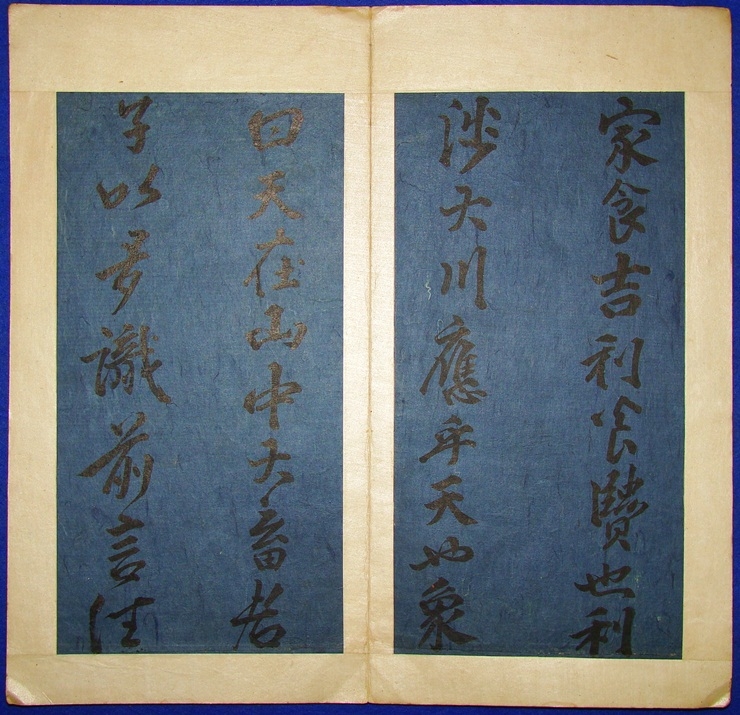 家食吉利食賢也利
涉大川應乎天也象
曰天在山中大畜君
子以多識前言往